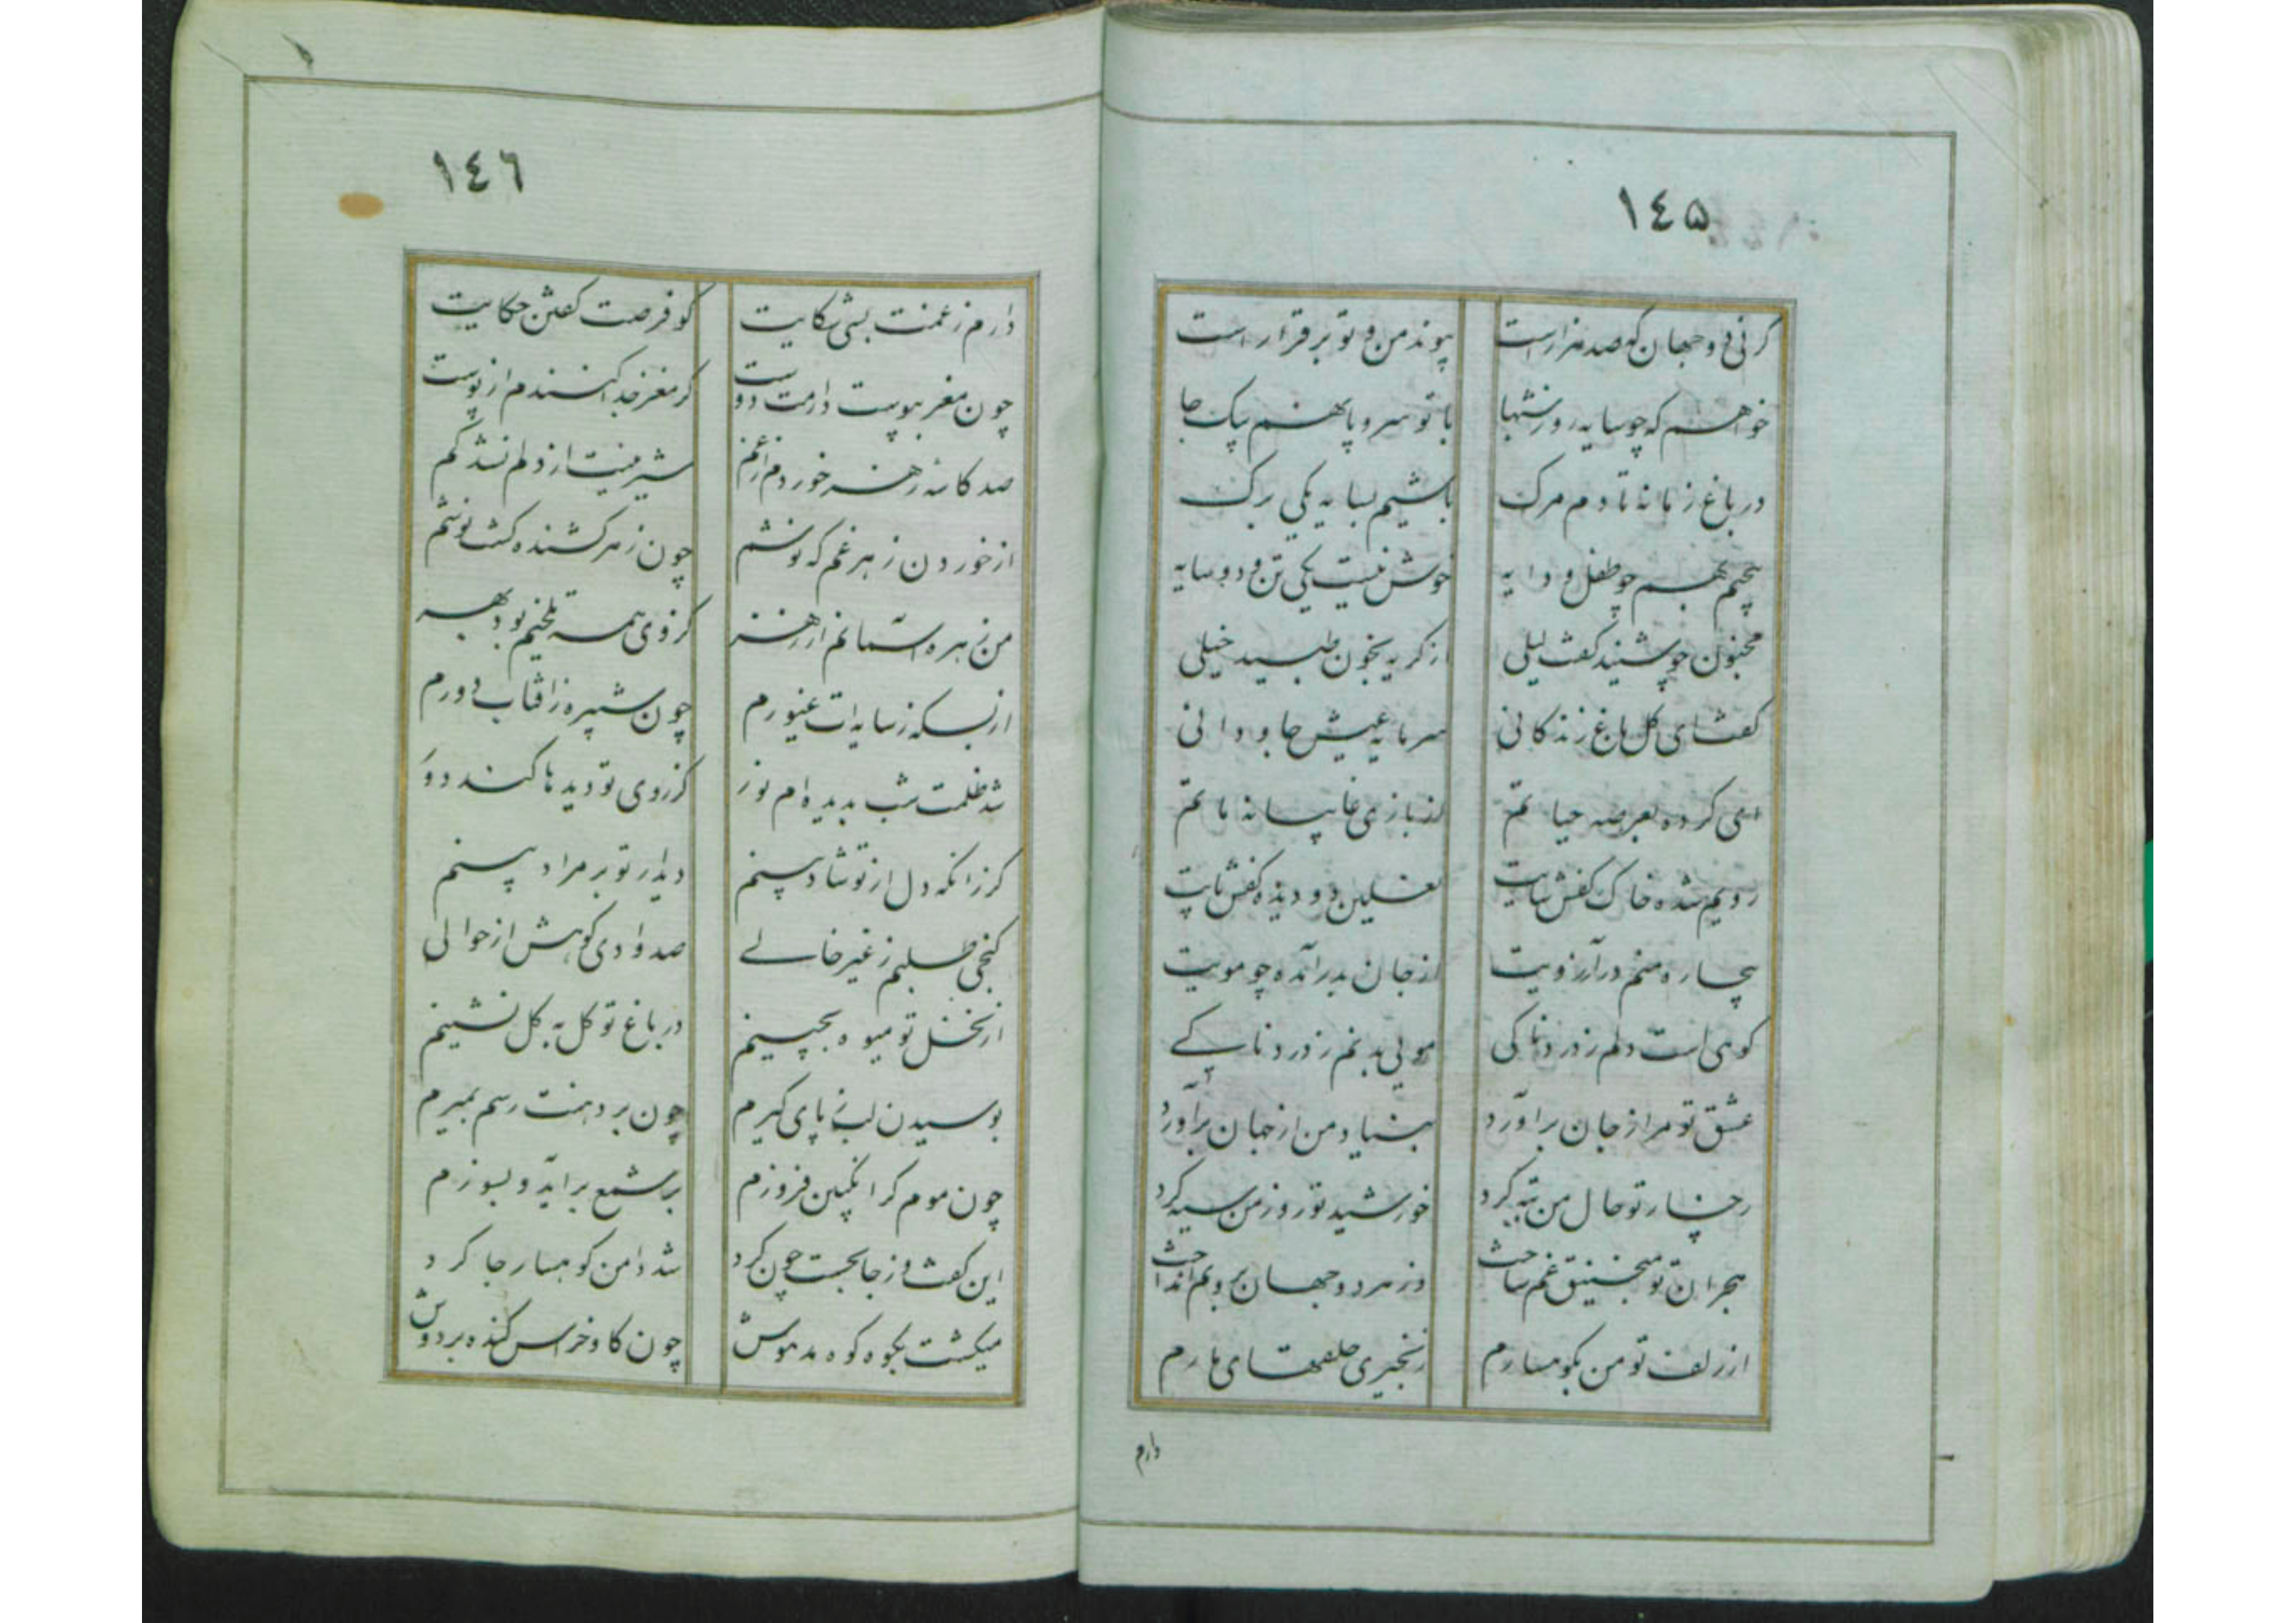 ١٤٥
کرنی دو جهان که صد هزار است پیوند من و تو بر قرار است
خواهم که چو سایه روز شبها با تو سر و پا نهم بیک جا
در باغ زمانه تا دم مرک باشیم بسایه یکی برک
پیچیم بهم چو طفل و دایه خوش نیست یکی تن و دو سایه
مجنون چو شنید کفت لیلی از کریه بخون طپید خیلی
کفتا ای کل باغ زندکانی سرمایه عیش جاودانی
ای کرده بعرصه حیاتم از بازی غایبانه ماتم
رویم شده خاک کفش سایت نعلین دو دیده کفش پایت
بیچاره منم در آرزویت از جان بدر آمده چو مویت
کوهی است دلم ز دردناکی مویی بدنم ز دردناکے
عشق تو مرا از جان برآورد بنیاد من از جهان برآورد
رخسار تو حال من تبه کرد خورشید تو روز من سیه کرد
هجران تو منجنیق غم ساخت وز هر دو جهان برونم انداخت
از زلف تو من بکوهسارم زنجیری حلقهای مارم
دارم
١٤٦
دارم ز غمت بسی شکایت کو فرصت کفتن حکایت
چون مغز بپوست دارمت دوست کر مغز جدا کنندم از پوست
صد کاسه زهر خوردم از غم شیرینیت از دلم نشد کم
از خوردن زهر غم که نوشم چون زهر کشنده کشت نوشم
من زهره ستانم از زهر کز وی همه تلخیم بود بهر
از بسکه ز سایه ات غیورم چون شپره ز افتاب دورم
شد ظلمت شب بدیده ام نور کز روی تو دیدها کند دور
کر زانکه دل از تو شاد بینم دیدار تو بر مراد بینم
کنجی طلبم ز غیر خالے صد وادی کوهش از حوالی
از نخل تو میوه بچینم در باغ تو کل به کل نشینم
بوسیدن لب ز پای کیرم چون بر دهنت رسم بمیرم
چون موم کر انکبین فروزم بر شمع برآید و بسوزم
این کفت و ز جا بجست چون کرد شد دامن کوهسار جا کرد
میکشت بکوه کوه مدهوش چون کاو خراس کنده بر دوش